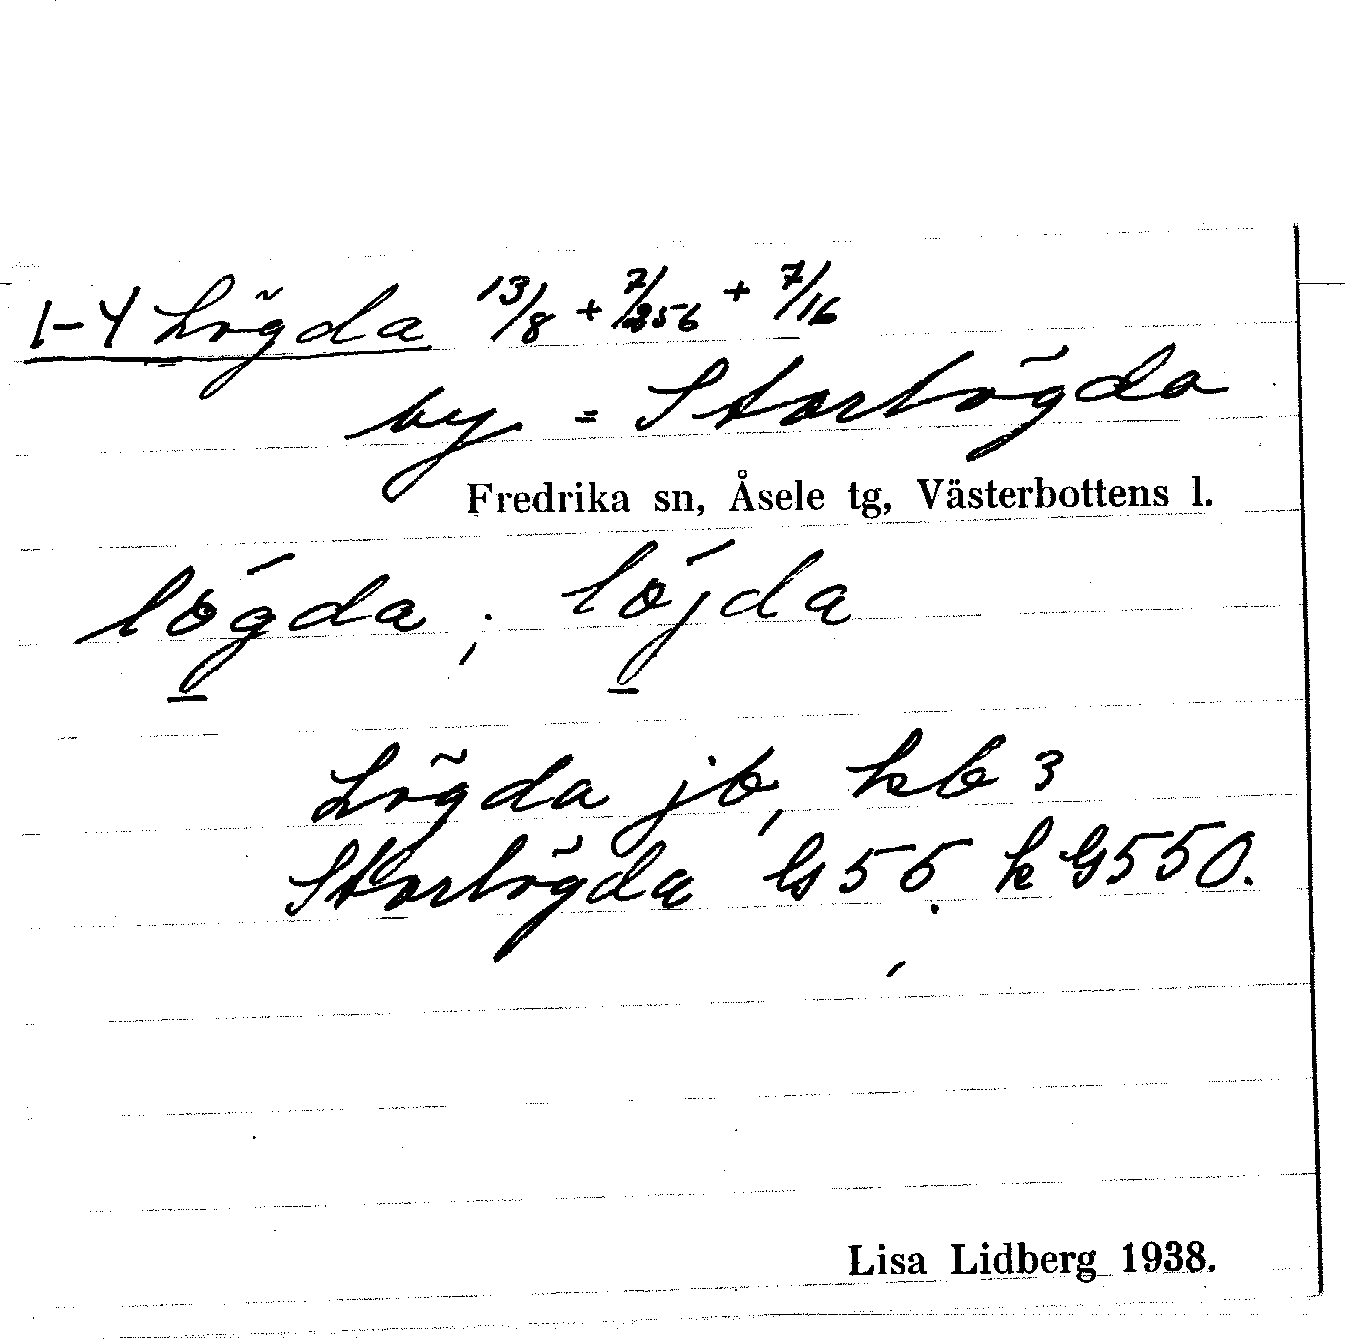 1-4 Lögda 13/8 + 7/256 + 7/16
by = Storlögda
Fredrika sn, Åsele tg, Västerbottens l.
lögda ; löjda
Lögda jb, kb 3
Storlögda Gs 55, k Gs 550.
Lisa Lidberg 1938.